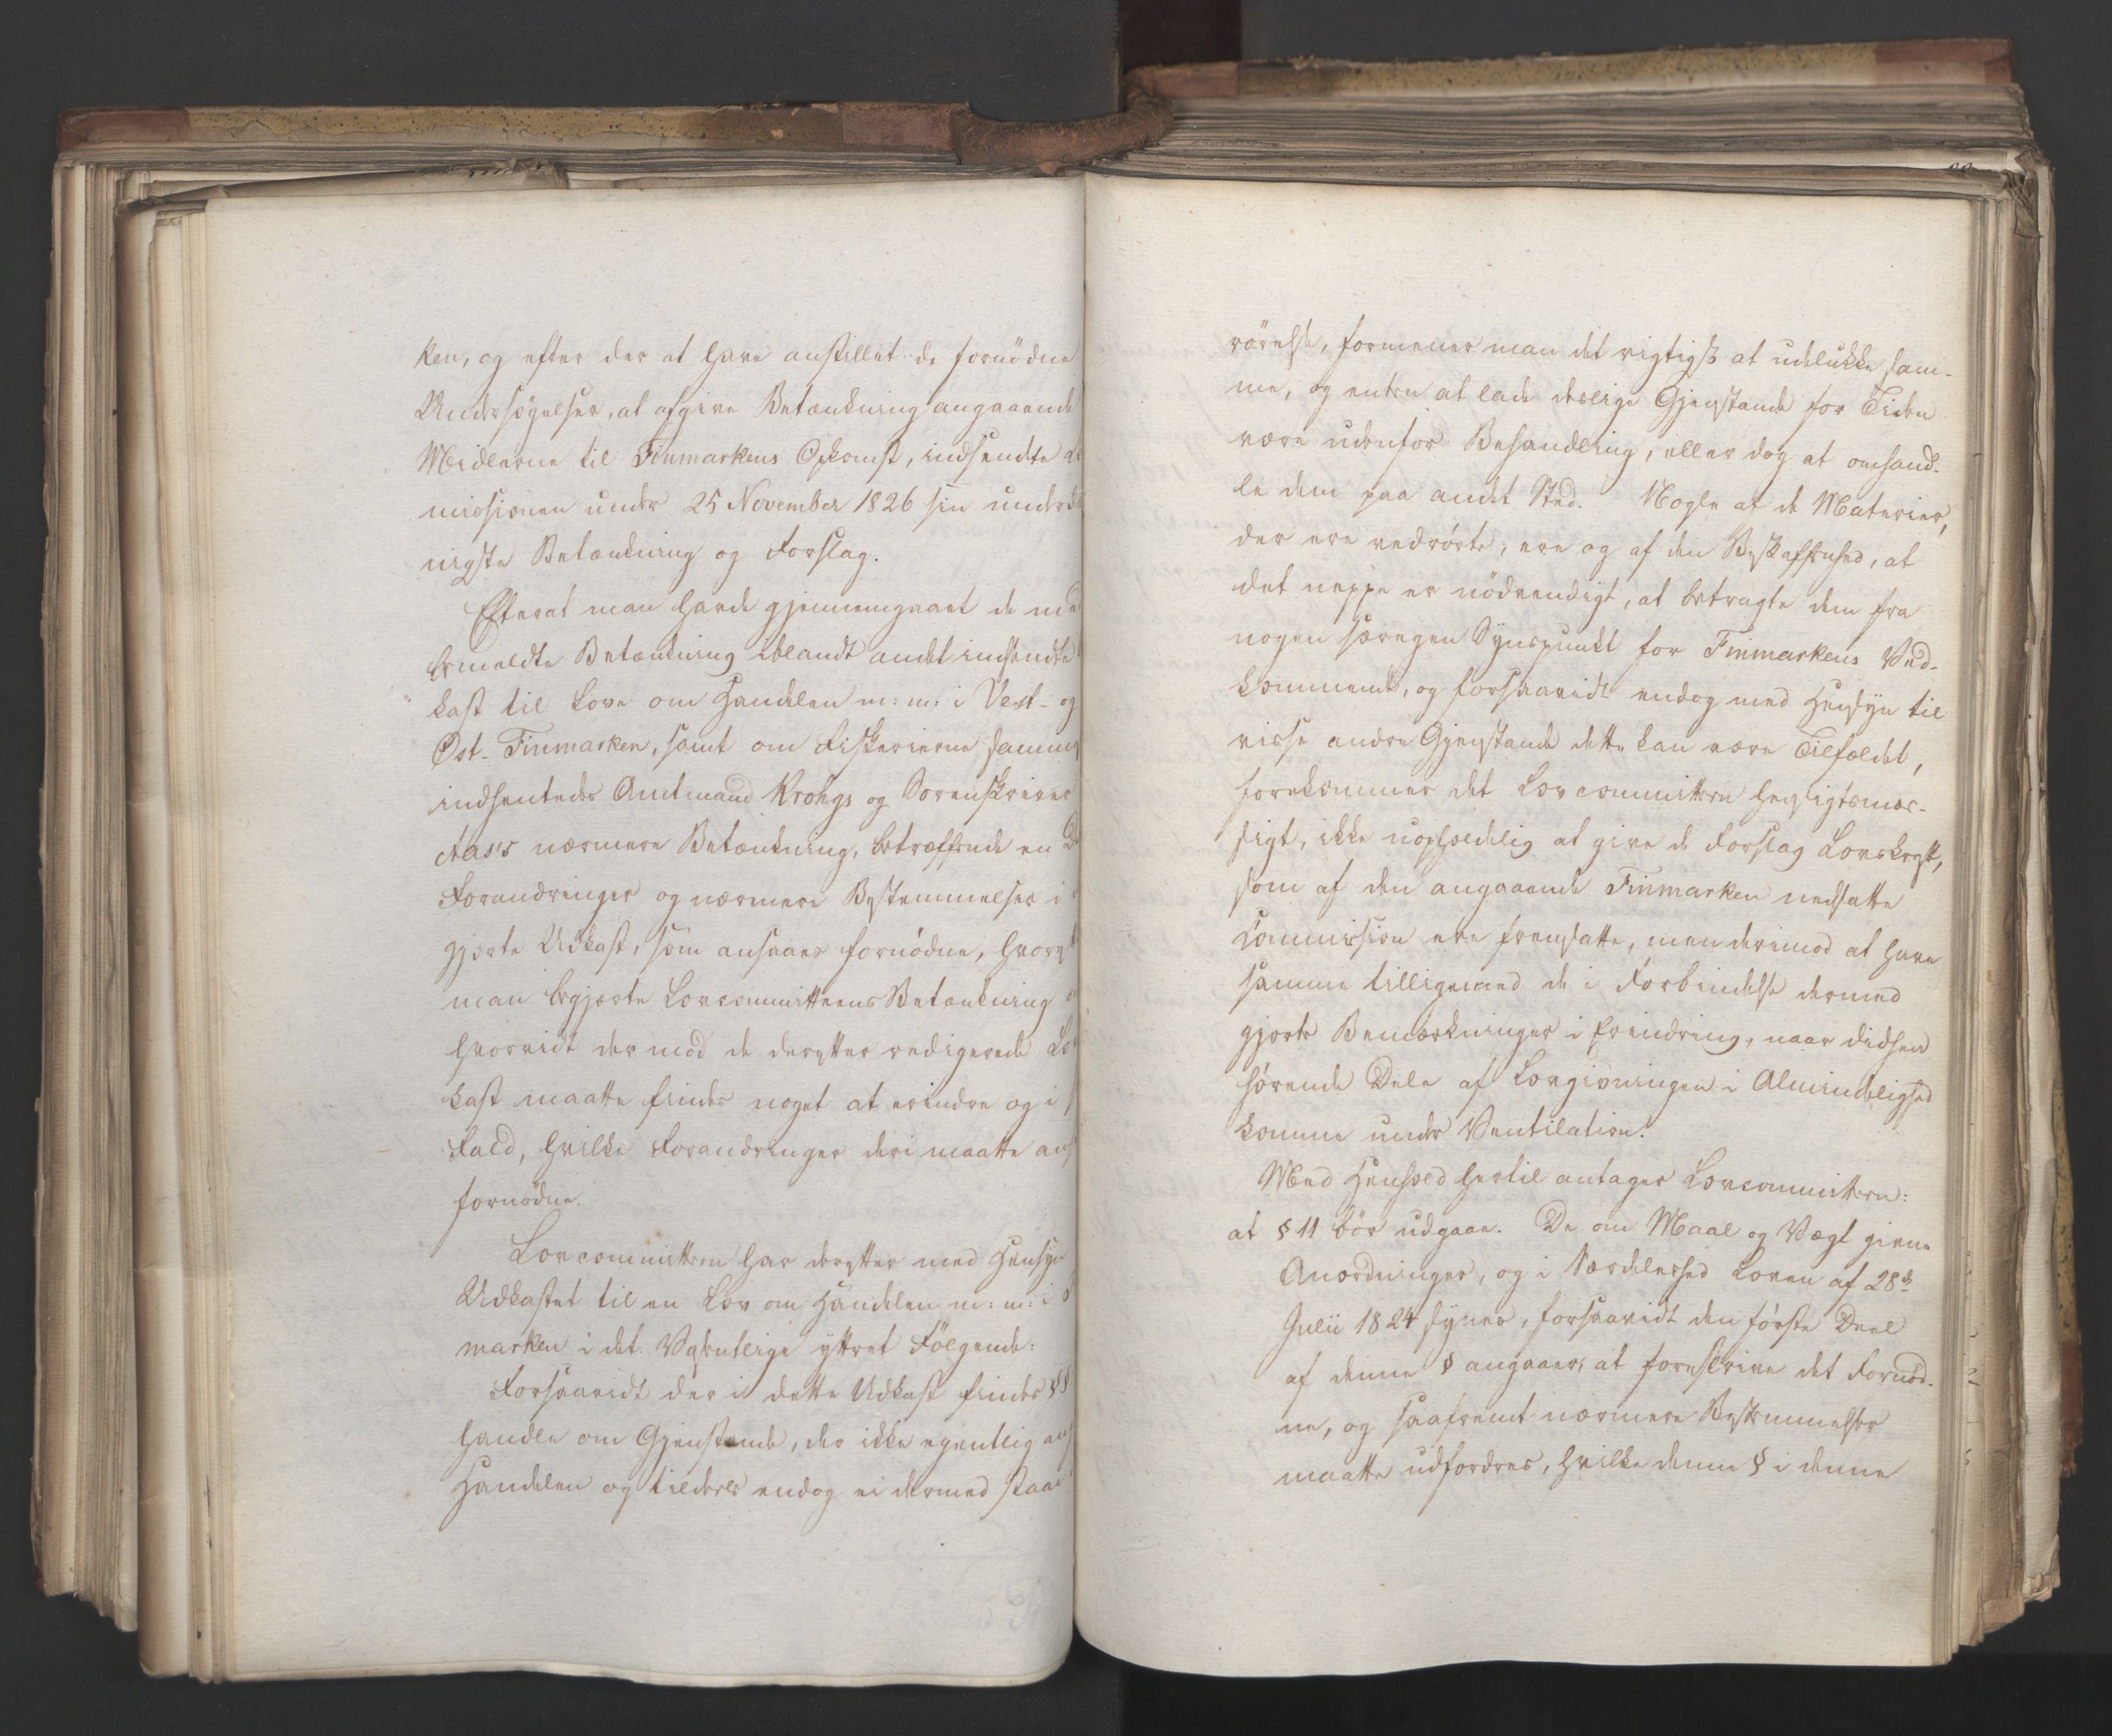 ken, og efter der at have anstillet de fornödne
Undersögelser, at afgive Betænkning angaaende
Midlerne til Finmarkens Opkomst, indsendte
missionen under 25 November 1826 sin underd
nigste Betænkning og Forslag.
Efterat man havde gjennemgaaet de med
bemeldte Betænkning iblandt andet indsendte
kast til Love om Handelen m: m: i Vest- og
Øst-Finmarken, samt om Fiskerierne sammes
indhentedes Amtmand Krohgs og Sorenskriver
Aas's nærmere Betænkning, betræffende en D
Forandringer og nærmere Bestemmelser i
gjorte Udkast, som ansaaes fornödne, hvorp
man begjerte Lovcommitteens Betænkning
hvorvidt der mod de derefter redigerede
kast maatte findes noget at erindre og i
Fald, hvilke Forandringer deri maatte ans
fornödne.
Lovcommitteen har derefter med Hensyn
Udkastet til en Lov om Handelen m: m: i
marken i det Væsentlige yttret Fölgende:
Forsaavidt der i dette Udkast findes §§
handle om Gjenstande, der ikke egentlig
Handelen og tildeels endog ei dermed staae
rörelse, formener man det rigtigst at udelukke sam-
me, og enten at lade deslige Gjenstande for Tiden
være udenfor Behandling, eller dog at omhand-
le dem paa andet Sted. Nogle af de Materier,
der ere vedrörte, ere og af den Beskaffenhed, at
det neppe er nödvendigt, at betragte dem fra
nogen særegen Synspunkt for Finmarkens Ved-
kommende, og forsaavidt endog med Hensyn til
visse andre Gjenstande dette kan være Tilfældet,
forekommer det Lovcommitteen hensigtsmæs-
sigt, ikke uopholdelig at give de Forslag Lovskraft,
som af den angaaende Finmarken nedsatte
Commission ere fremsatte, men derimod at have
samme tilligemed de i Forbindelse dermed
gjorte Bemærkninger i Erindring, naar didhen
hörende Dele af Lovgivningen i Almindelighed
komme under Ventilation.
Med Henhold hertil antager Lovcommitteen:
at § 11 bör udgaae. De om Maal og Vægt givne
Anordninger, og i Særdeleshed Loven af 28de
Julii 1824 synes, forsaavidt den förste Deel
af denne § angaaer, at foreskrive det Fornöd-
ne, og saafremt nærmere Bestemmelser
maatte udfordres, hvilke denne § i denne